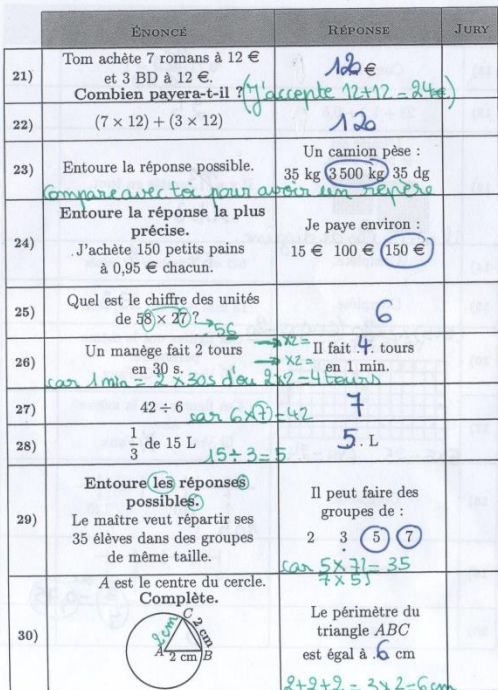 ÉNONCÉ RÉPONSE JURY
21) Tom achète 7 romans à 12 €
et 3 BD à 12 €.
Combien payera-t-il ?
120 €
(J'accepte 12+12=24€)
22) (7 × 12) + (3 × 12) 120
23) Entoure la réponse possible.
Un camion pèse :
35 kg 3 500 kg 35 dg
Compare avec toi pour avoir un repère
24) Entoure la réponse la plus
précise.
J'achète 150 petits pains
à 0,95 € chacun.
Je paye environ :
15 € 100 € 150 €
25) Quel est le chiffre des unités
de 58 × 27 ?
56
6
26) Un manège fait 2 tours
en 30 s.
×2=
×2=
Il fait 4 tours
en 1 min.
car 1 min = 2 × 30s d'où 2×2=4 tours
27) 42 ÷ 6 car 6×7=42 7
28) 1/3 de 15 L 15÷3=5 5. L
29) Entoure les réponses
possibles.
Le maître veut répartir ses
35 élèves dans des groupes
de même taille.
Il peut faire des
groupes de :
2 3 5 7
car 5×7=35
7×5
30) A est le centre du cercle.
Complète.
C
2cm 2 cm
A 2 cm B
Le périmètre du
triangle ABC
est égal à 6 cm
2+2+2 = 3×2=6cm